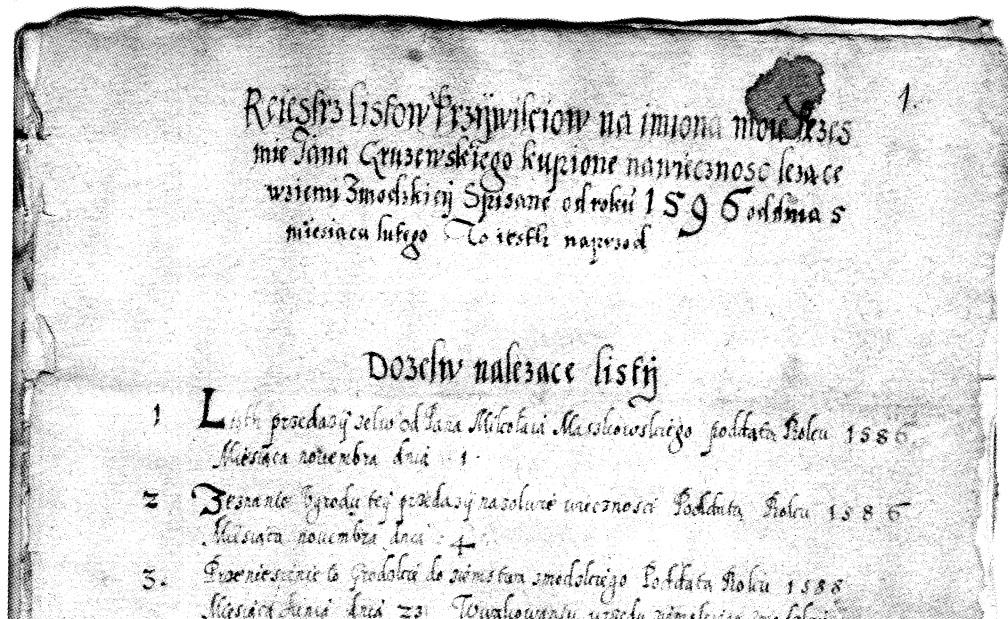 1.
Reiestrz listow Przÿwileiow na imiona moie Przes
mie Jana Gruzewskiego kupione nawiecznosc lezące
wziemi Zmodzkieÿ Spisane od roku 1596 oddnia 5
miesiaca lutego To iesth naprzod
Dozelw nalezące listÿ
1 Listh przedazÿ zelw od Jana Mikołaia Masskowskiego poddatą Roku 1586
Miesiąca novembra dnia 1.
2 Zeznanie Ogrodu teÿ przedazÿ nazelwie wiecznosci Poddatą Roku 1586
Miesiąca nouembra dnia 4
3. Przeniesienie to Grodskie do ziemstwa zmodzkiego Poddatą Roku 1588
Miesiąca Junia dnia 23 urzedu